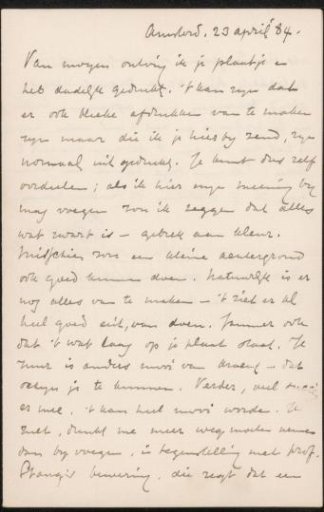 Amsterd. 23 april '84.
Van morgen ontving ik je plaatje en
heb dadelijk gedrukt. 't kan zijn dat
er ook bleeke afdrukken van te maken
zijn maar die ik je hierbij zend, zijn
normaal uitgedrukt. Je kunt dus zelf
oordeelen; als ik hier mijn meening bij
mag voegen zou ik zeggen dat alles
wat zwart is – gebrek aan kleur.
Misschien zou een kleine achtergrond
ook goed kunnen doen. Natuurlijk is er
nog alles van te maken – 't ziet er al
heel goed uit, van doen. Jammer ook
dat 't wat laag op je plaat staat. Je
is anders mooi van – dat
je te kunnen. Verder, veel
er mee. 't kan heel mooi worden. Je
ziet, dunkt me meer weg moeten nemen
dan bij voegen, in tegenstelling met prof.
bewering, die zegt dat een